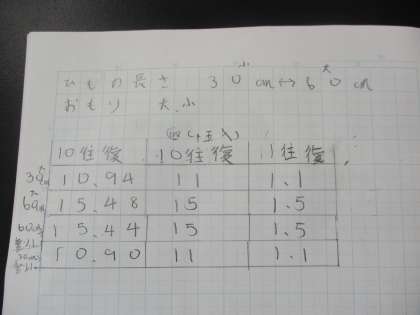 小 大
ひもの長さ 30cm↔60cm
おもり 大.小
(四しゃ五入)
10往復 10往復 1往復
大 30cm 10.94 11 1.1
大 60cm 15.48 15 1.5
60cm 15.44 15 1.5
30cm 10.90 11 1.1